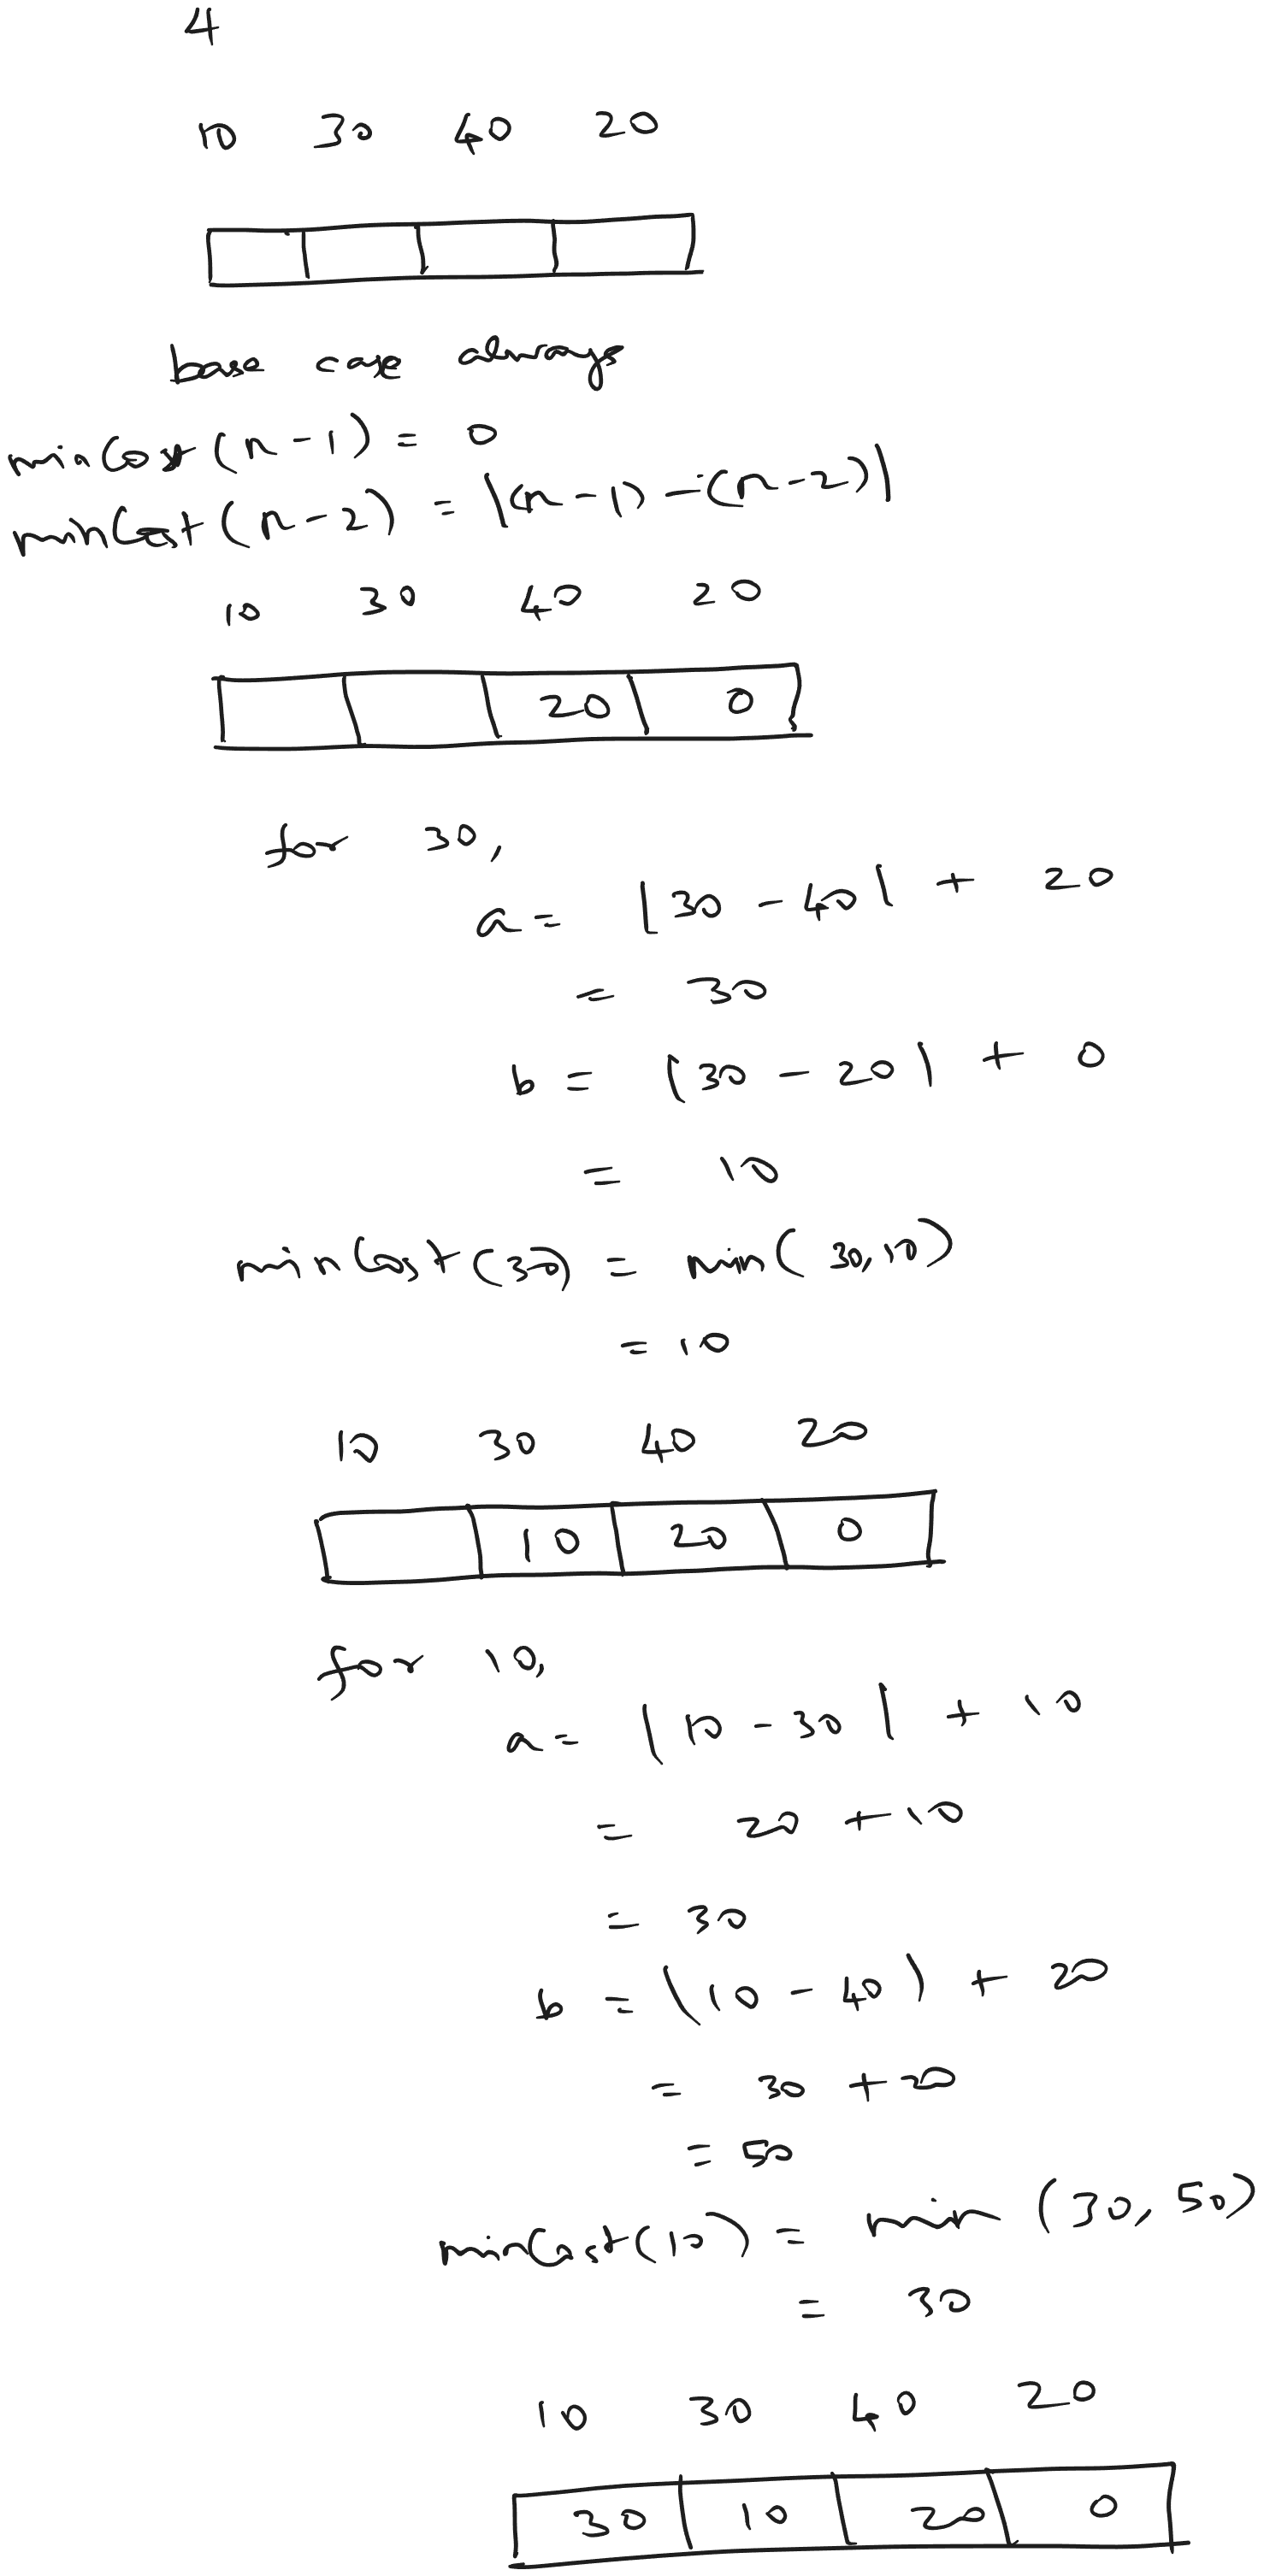 4
10 30 40 20
base case always
minCost(n-1) = 0
minCost(n-2) = |(n-1)-(n-2)|
10 30 40 20
20 0
for 30,
a = |30 - 40| + 20
= 30
b = |30 - 20| + 0
= 10
minCost(30) = min(30,10)
= 10
10 30 40 20
10 20 0
for 10,
a = |10 - 30| + 10
= 20 + 10
= 30
b = |10 - 40| + 20
= 30 + 20
= 50
minCost(10) = min (30, 50)
= 30
10 30 40 20
30 10 20 0